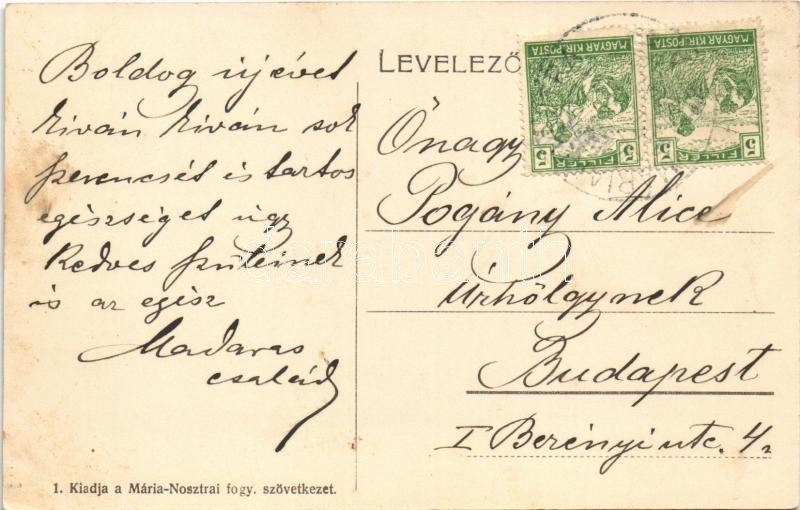 Boldog újévet
kiván kiván sok
szerencsét és tartos
egészséget úgy
kedves szüleinek
is az egész
Madaras
család
1. Kiadja a Mária-Nosztrai fogy. szövetkezet.
LEVELEZŐ
Őnagy
Pogány Alice
Úrhölgynek
Budapest
I Berényi utc. 4/2
MAGYAR KIR. POSTA
5 FILLÉR 5
MAGYAR KIR. POSTA
5 FILLÉR 5
darabanth